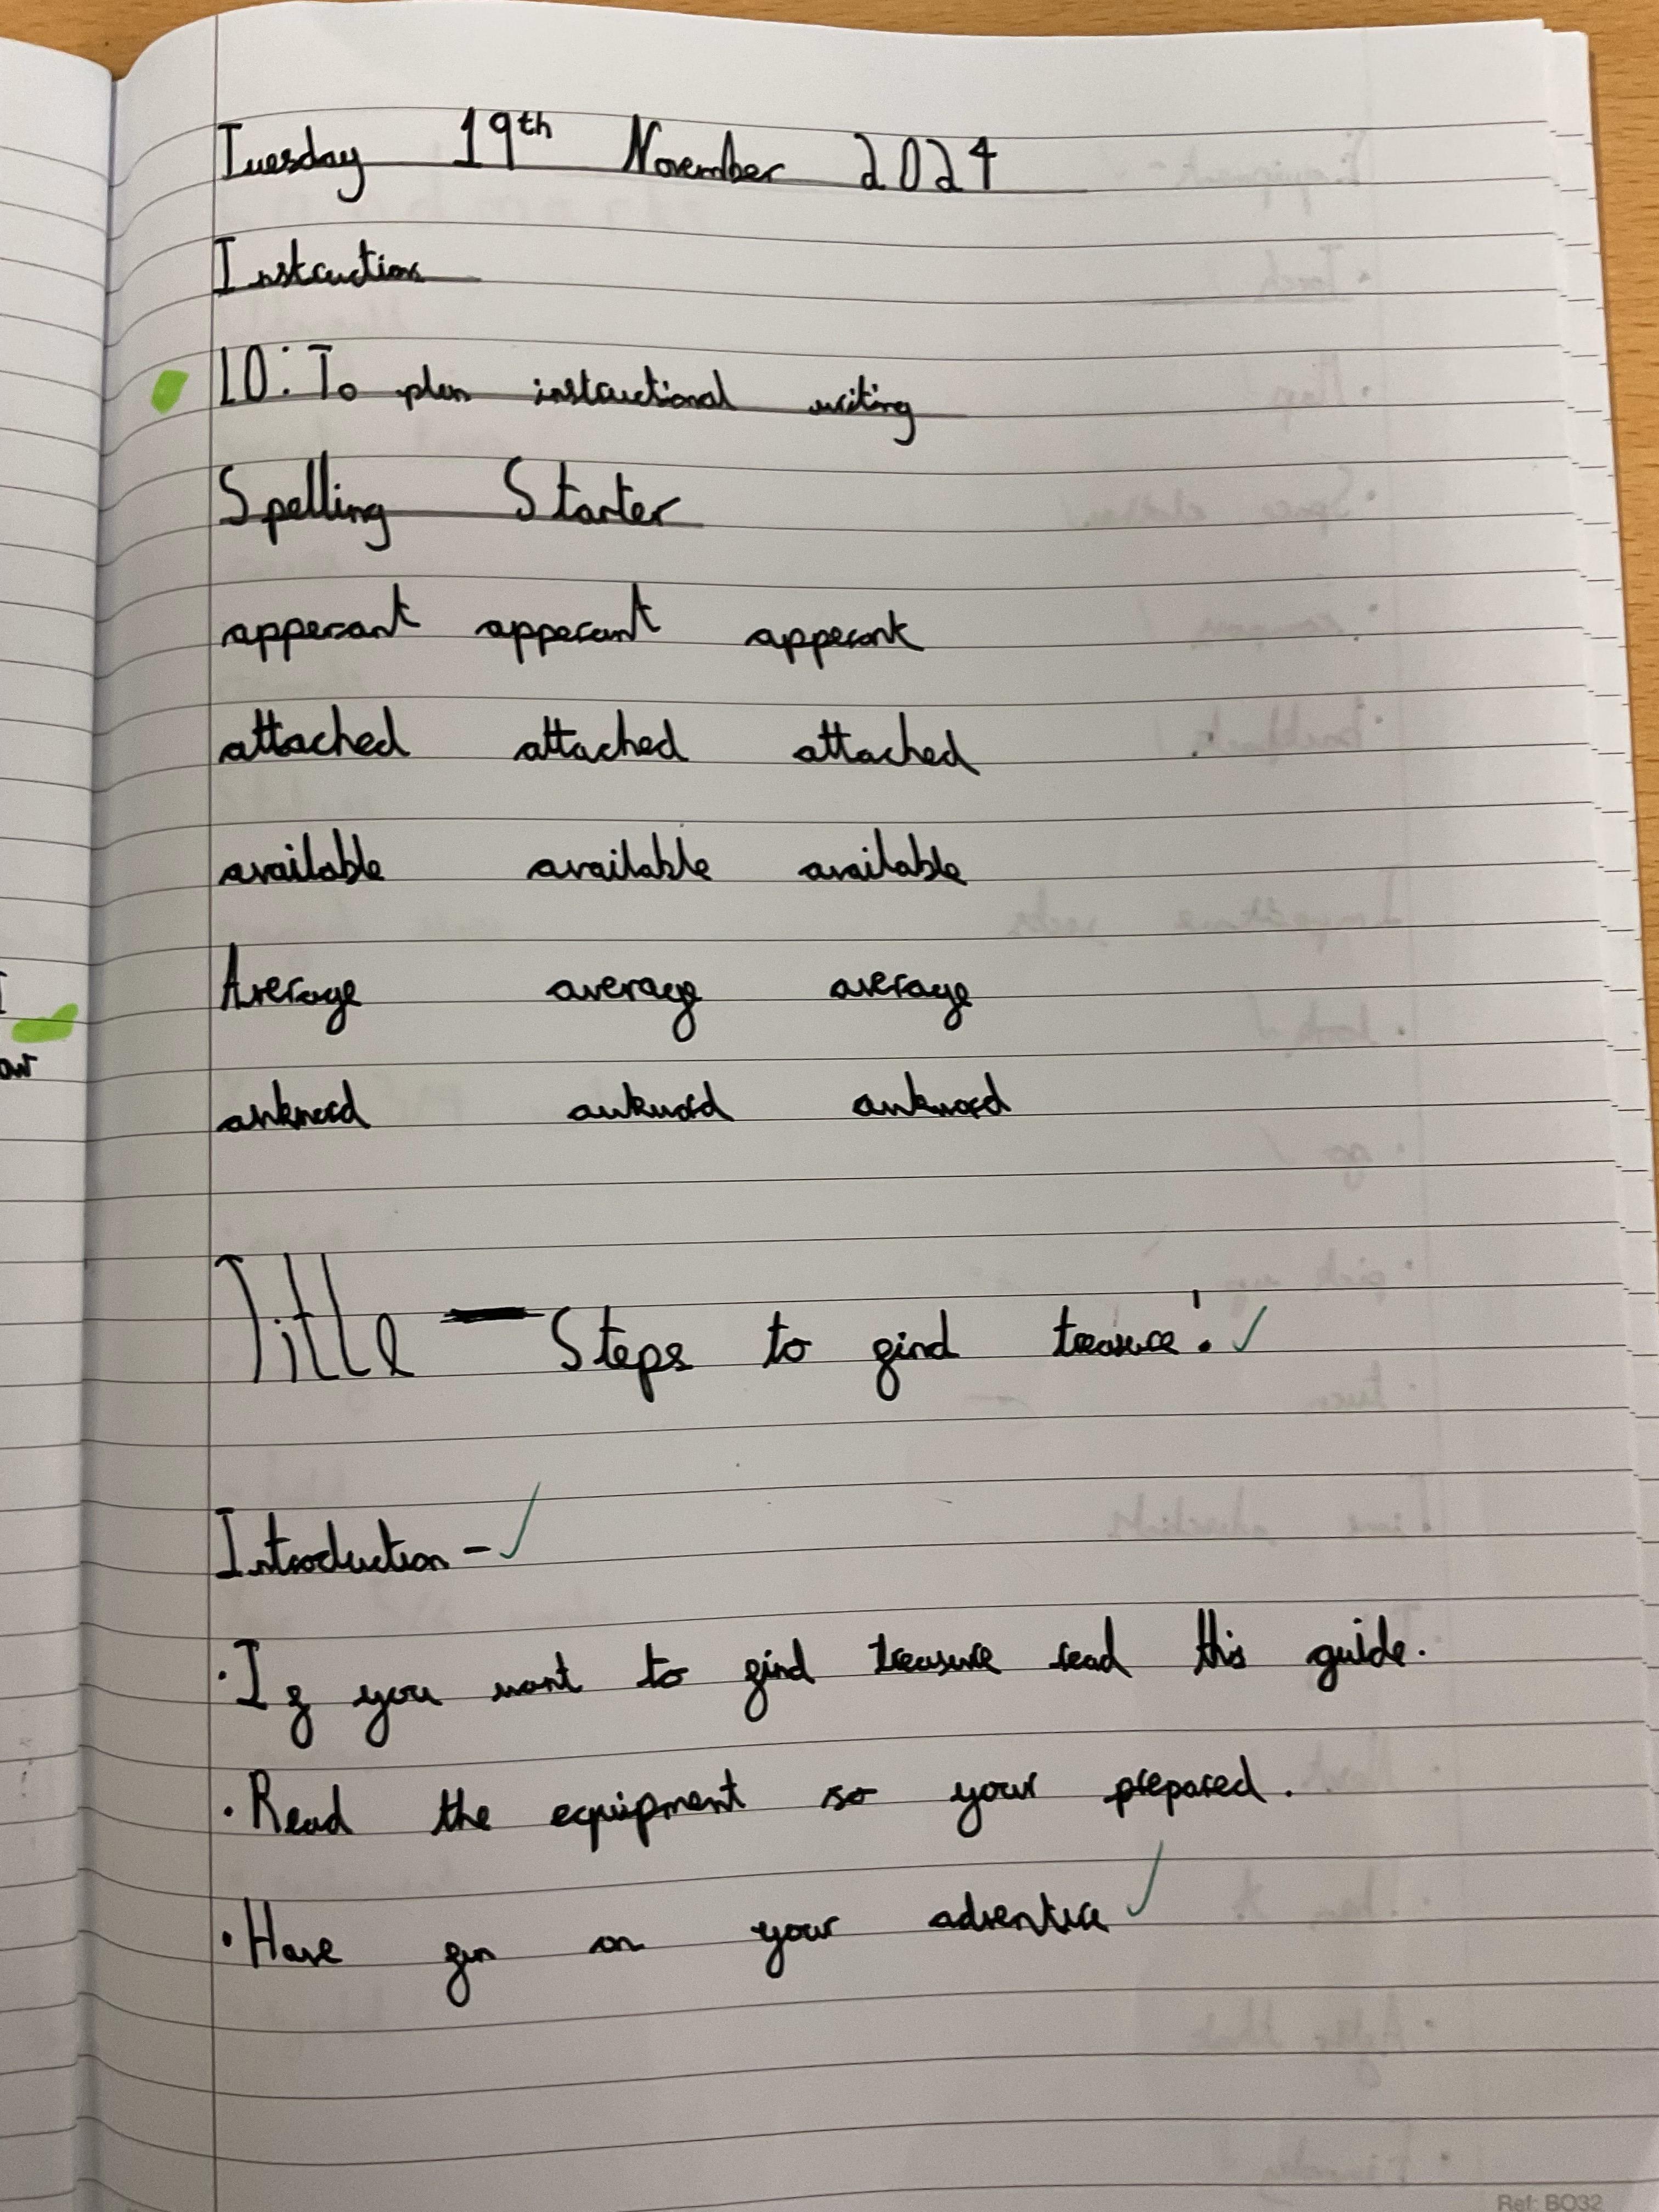 Tuesday 19th November 2024
Instructions
LO: To plan instructional writing
Spelling Starter
apperant apperant apperant
attached attached attached
available available available
Average average average
awkword awkword
Title - Steps to find treasure!
Introduction -
· If you want to find treasure read this guide.
· Read the equipment so your prepared.
· Have fun on your adventure
Ref: BO32